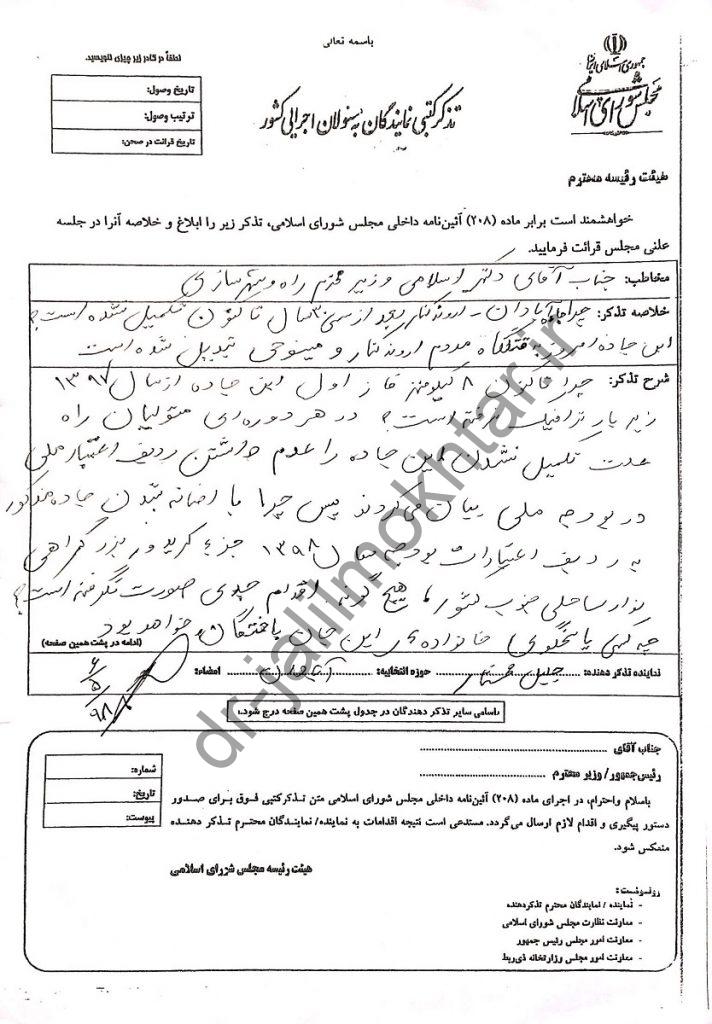 باسمه تعالی
جمهوری اسلامی ایران
مجلس شورای اسلامی
لطفاً در کادر زیر چیزی ننویسید.
تاریخ وصول:
ترتیب وصول:
تاریخ قرائت در صحن:
تذکر کتبی نمایندگان به مسئولان اجرایی کشور
هیئت رئیسه محترم
خواهشمند است برابر ماده (۲۰۸) آئین‌نامه داخلی مجلس شورای اسلامی، تذکر زیر را ابلاغ و خلاصه آنرا در جلسه
علنی مجلس قرائت فرمایید.
مخاطب: جناب آقای دکتر اسلامی وزیر محترم راه و شهرسازی
خلاصه تذکر: چرا جاده آبادان - اروندکنار بعد از سی ۳۰ سال تا کنون تکمیل نشده است؟
این جاده امروز به قتلگاه مردم اروندکنار و مینوحی تبدیل شده است
شرح تذکر: چرا تاکنون ۸ کیلومتر فاز اول این جاده از سال ۱۳۹۷
زیر بار ترافیک نرفته است؟ در هر دوره‌ای متولیان راه
علت تکمیل نشدن این جاده را عدم داشتن ردیف اعتبار ملی
در بودجه ملی بیان می‌کردند پس چرا با اضافه شدن جاده مذکور
به ردیف اعتبارات بودجه سال ۱۳۹۸ جزء کریدور بزرگراهی
نوار ساحلی جنوب کشور هیچ گونه اقدام جدی صورت نگرفته است؟
چه کسی پاسخگوی خانواده‌ی این جان باختگان خواهد بود
(ادامه در پشت همین صفحه)
نماینده تذکر دهنده: جلیل مختار حوزه انتخابیه: آبادان امضاء:
۶/۵/۹۸
اسامی سایر تذکر دهندگان در جدول پشت همین صفحه درج شود.
جناب آقای
رئیس‌جمهور/ وزیر محترم
شماره:
تاریخ:
پیوست:
باسلام واحترام، در اجرای ماده (۲۰۸) آئین‌نامه داخلی مجلس شورای اسلامی متن تذکرکتبی فوق برای صدور
دستور پیگیری و اقدام لازم ارسال می‌گردد. مستدعی است نتیجه اقدامات به نماینده/ نمایندگان محترم تذکر دهنده
منعکس شود.
هیئت رئیسه مجلس شورای اسلامی
رونوشت:
- نماینده / نمایندگان محترم تذکردهنده
- معاونت نظارت مجلس شورای اسلامی
- معاونت امور مجلس رئیس جمهور
- معاونت امور مجلس وزارتخانه ذی‌ربط
dr-jalilmokhtar.ir